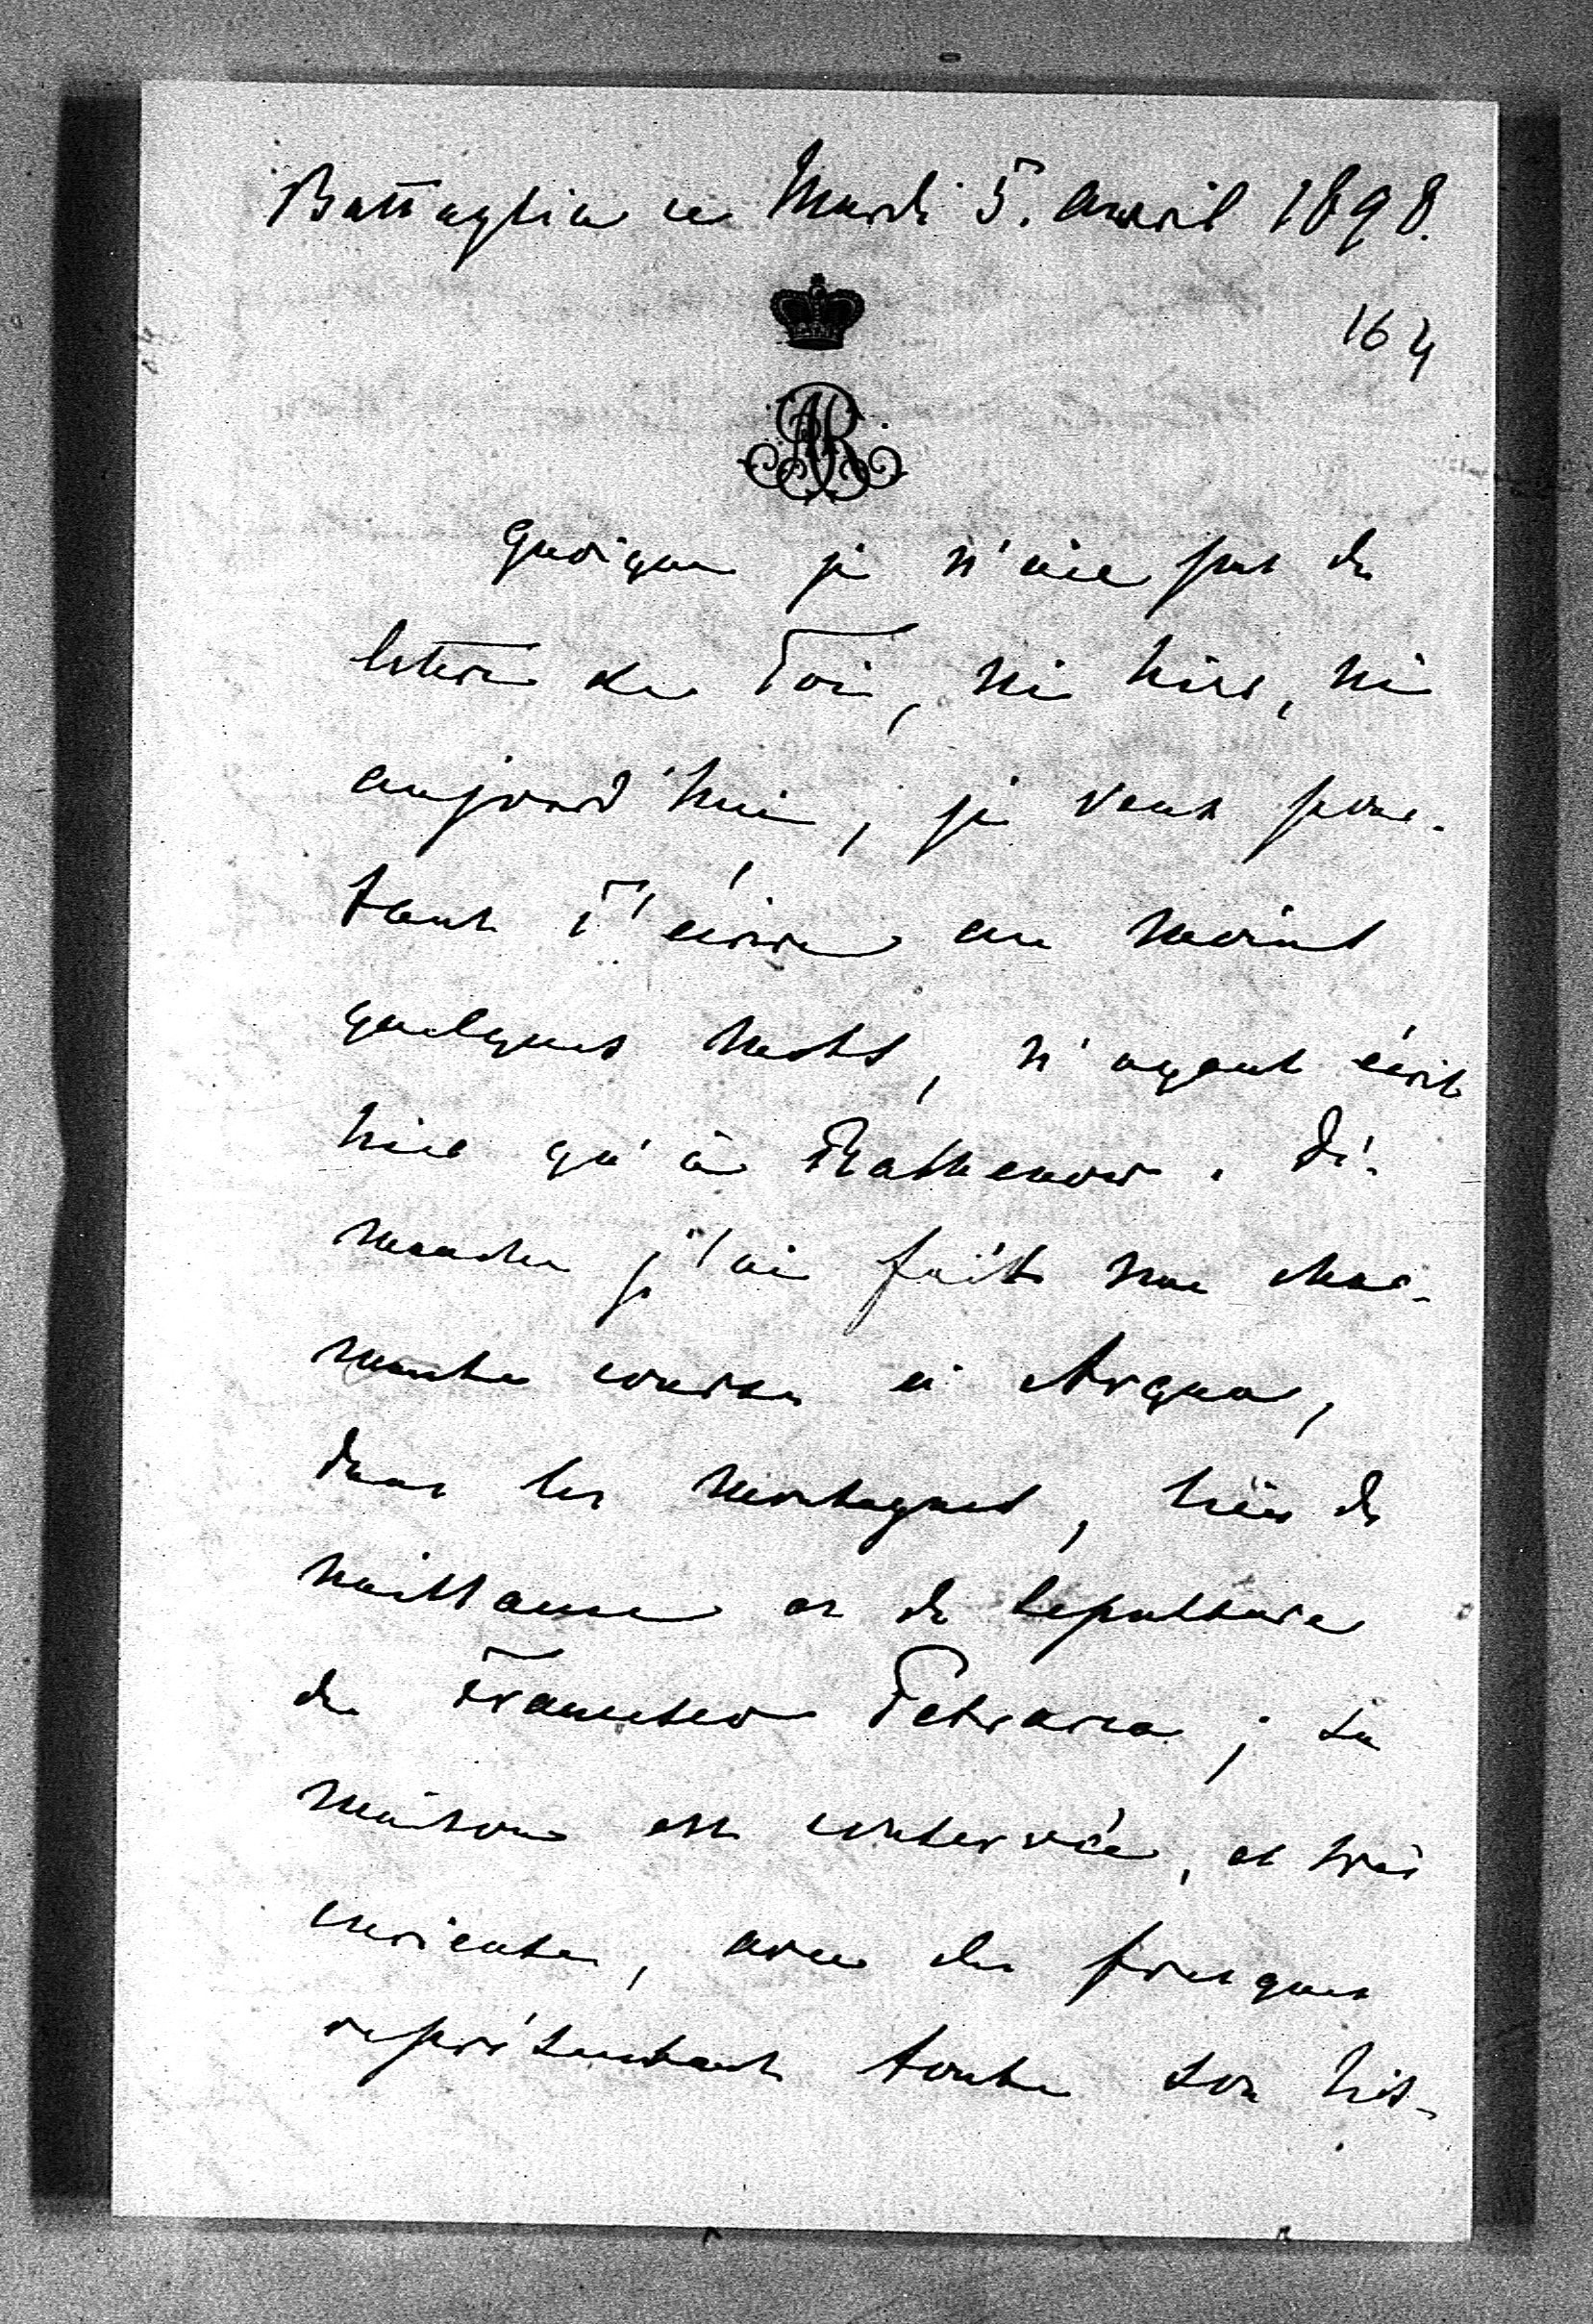 Battaglia ce Mardi 5. Avril 1898.
164
AR
Quoique je n'aie pas de
lettre de Toi, ni hier, ni
aujourd'hui, je veux pour-
tant T'écrire au moins
quelques mots, n'ayant écrit
hier qu'à Rathenow. Di-
manche j'ai fait une char-
mante course à Arqua,
dans les montagnes, lieu de
naissance et de sepulture
de Francesco Petrarca ; sa
maison est conservée, et très
curieuse, avec des fresques
représentant toute son his-